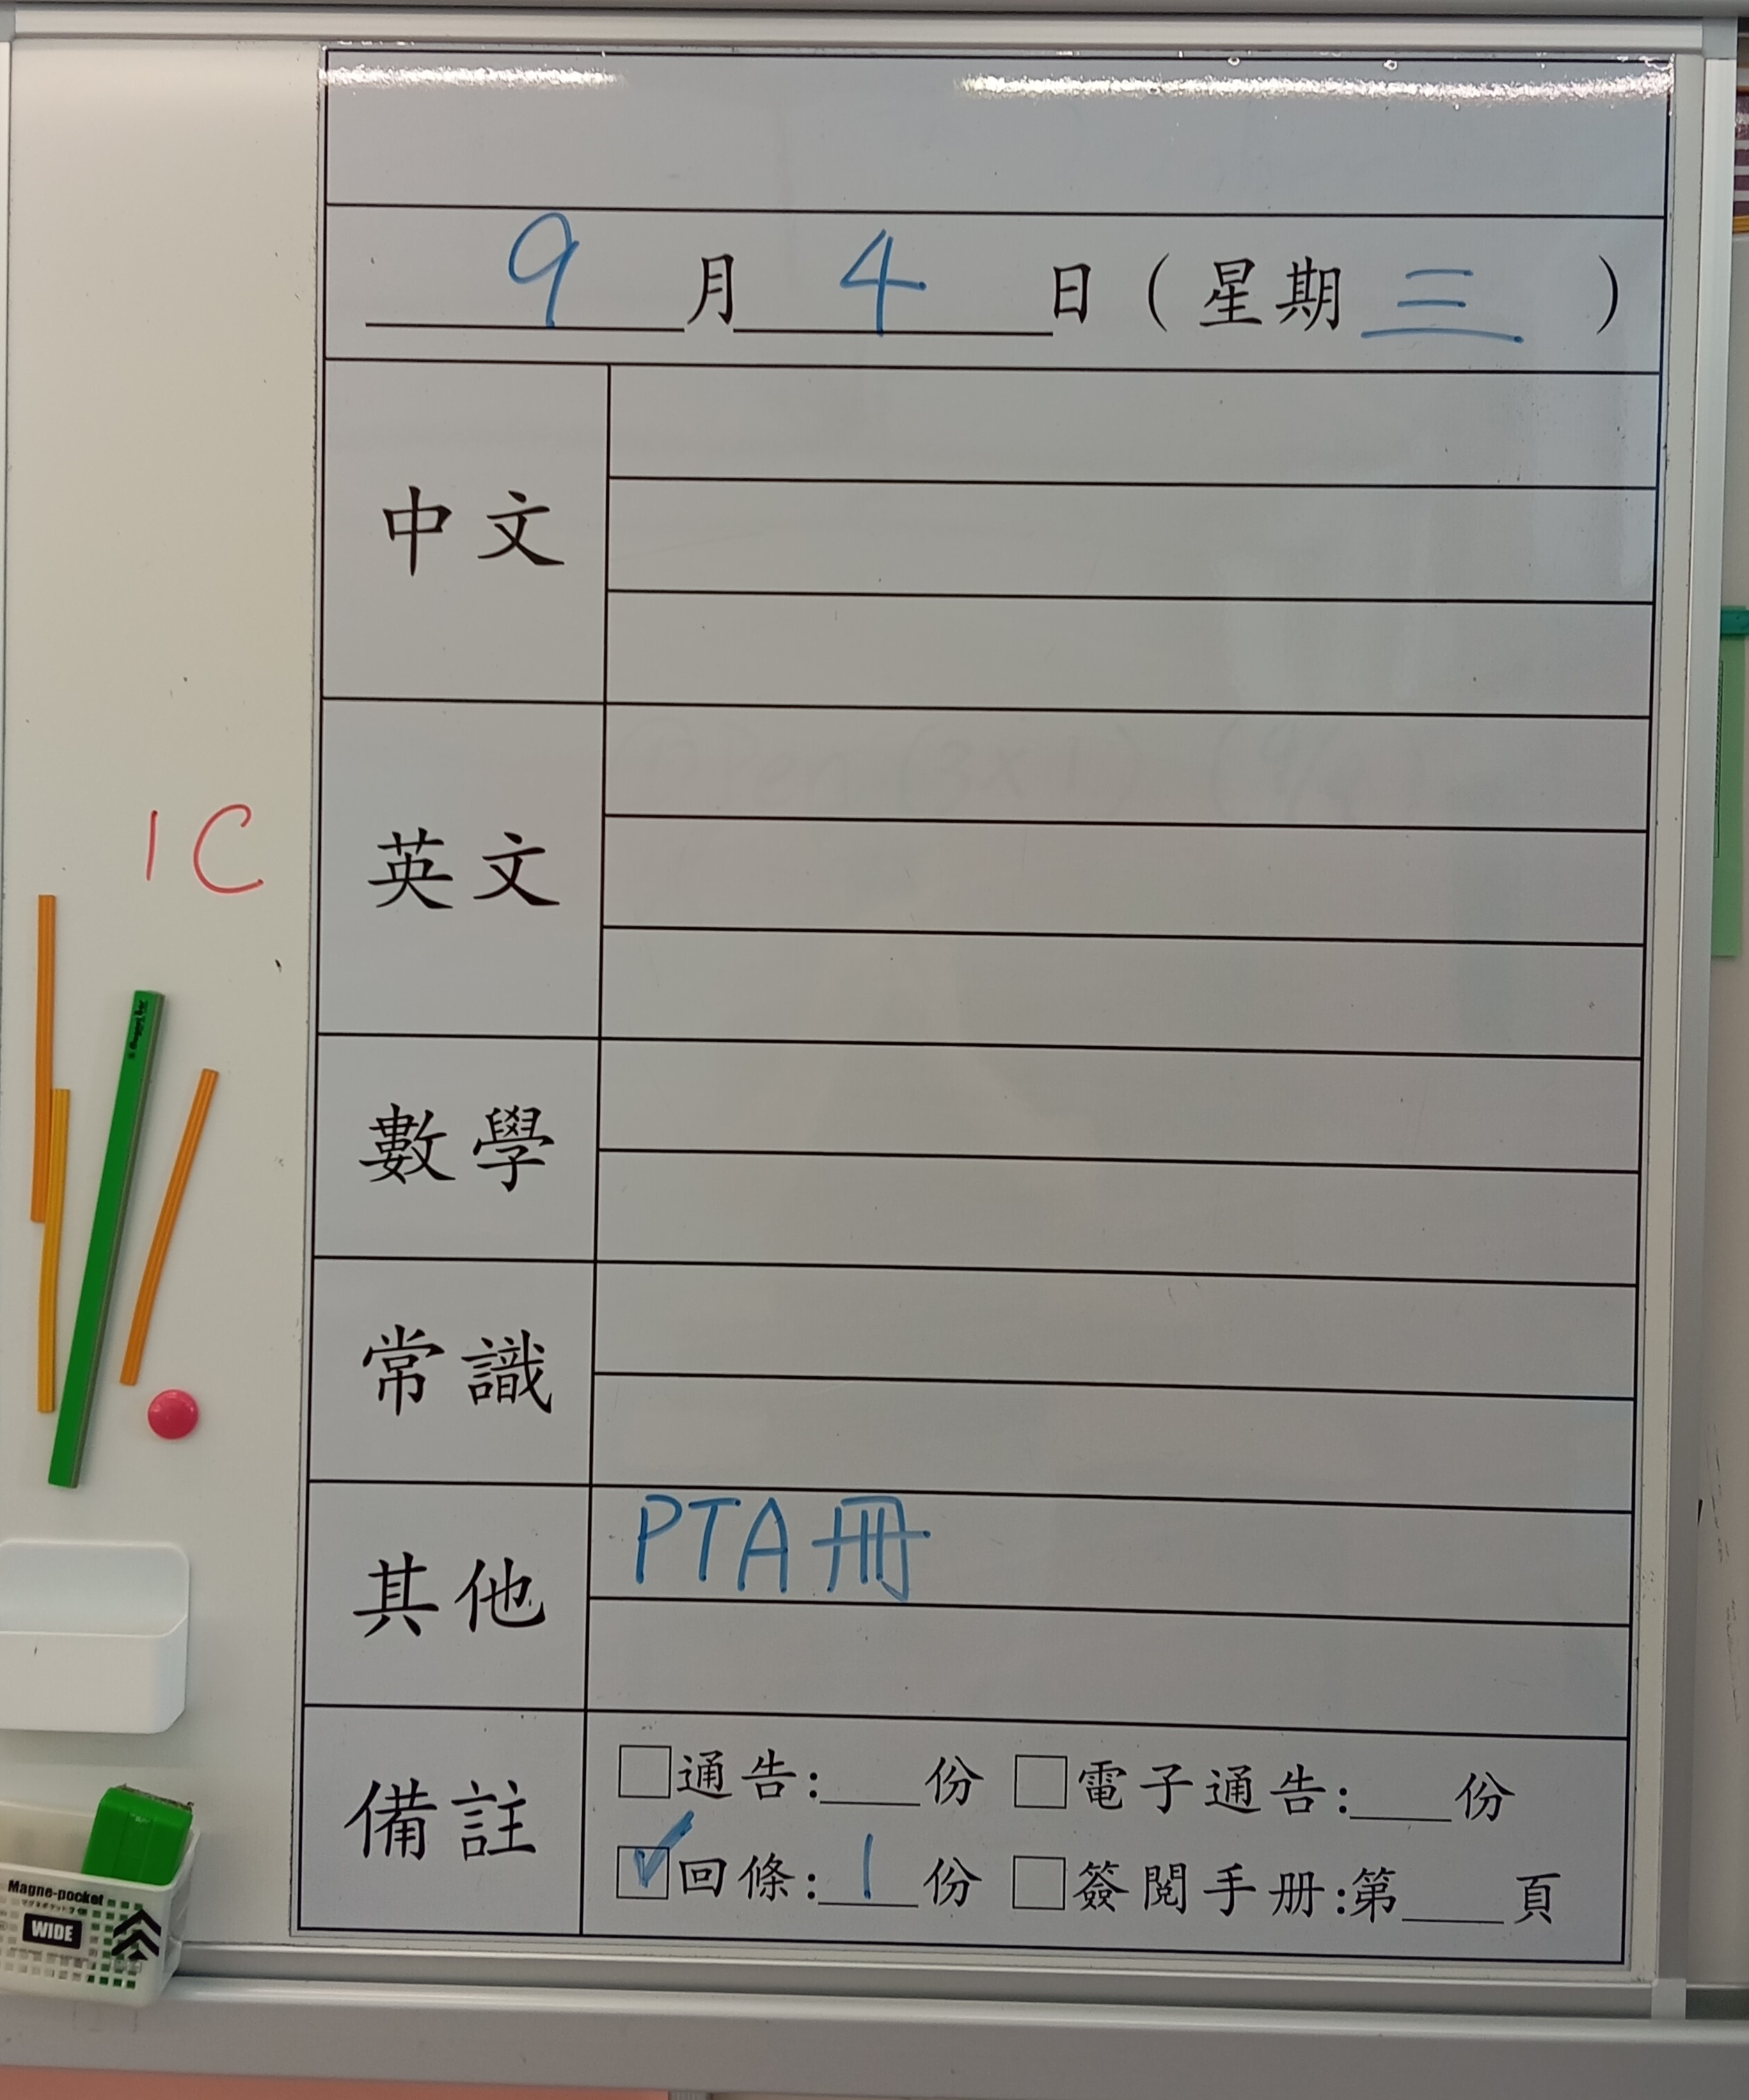 9月4日（星期三）
中文
英文
1C
數學
常識
其他 PTA冊
備註
□通告:___份 □電子通告:___份
☑回條:1份 □簽閱手册:第___頁
Magne-pocket
WIDE